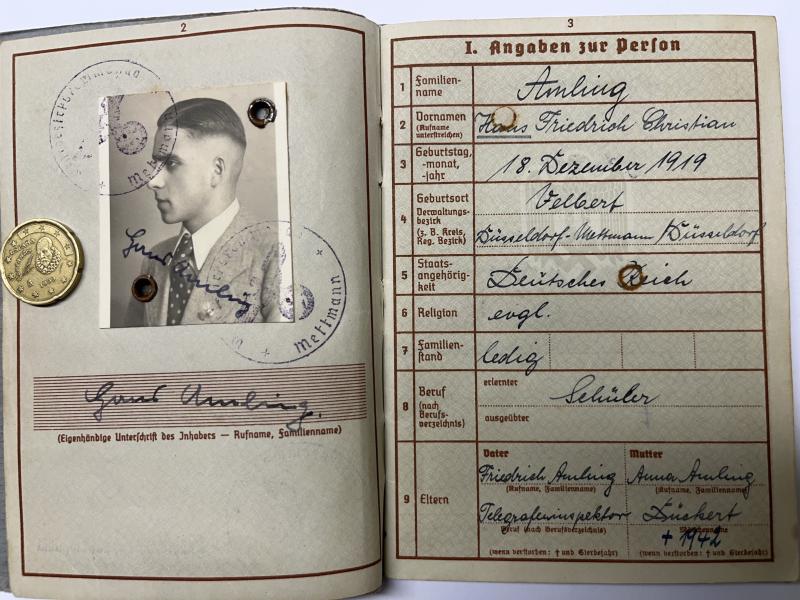 2
Mettmann
Mettmann
Hans Amling
Hans Amling.
(Eigenhändige Unterschrift des Inhabers — Rufname, Familienname)
3
I. Angaben zur Person
1 Familien-
name
Amling
2 Vornamen
(Rufname
unterstreichen)
Hans Friedrich Christian
3 Geburtstag,
-monat,
-jahr
18. Dezember 1919
4 Geburtsort
Verwaltungs-
bezirk
(z. B. Kreis,
Reg. Bezirk)
Velbert
Düsseldorf-Mettmann/Düsseldorf
5 Staats-
angehörig-
keit
Deutsches Reich
6 Religion
evgl.
7 Familien-
stand
ledig
8 Beruf
(nach
Berufs-
verzeichnis)
erlernter
Schüler
ausgeübter
9 Eltern
Vater
Friedrich Amling
(Rufname, Familienname)
Telegrafeninspektor
Beruf (nach Berufsverzeichnis)
(wenn verstorben: † und Sterbejahr)
Mutter
Anna Amling
(Rufname, Familienname)
Lückert
Mädchenname
† 1942
(wenn verstorben: † und Sterbejahr)